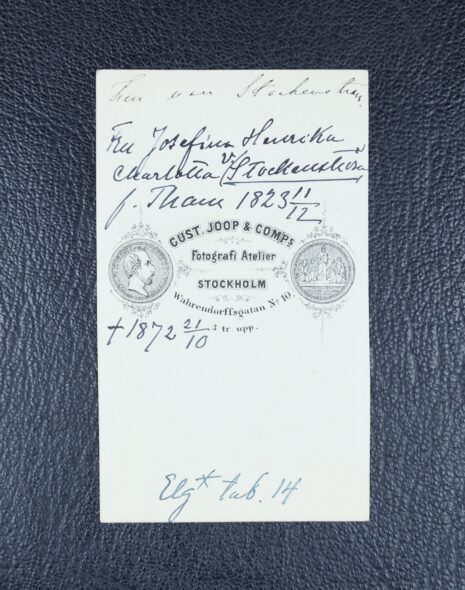 Fru von Stockenström
Fru Josefina Henrika
Charlotta v. Stockenström
f. Tham 1823 11/12
GUST. JOOP & COMPs
Fotografi Atelier
STOCKHOLM
Wahrendorffsgatan No 10.
3 tr. upp.
† 1872 21/10
Elg* tab. 14